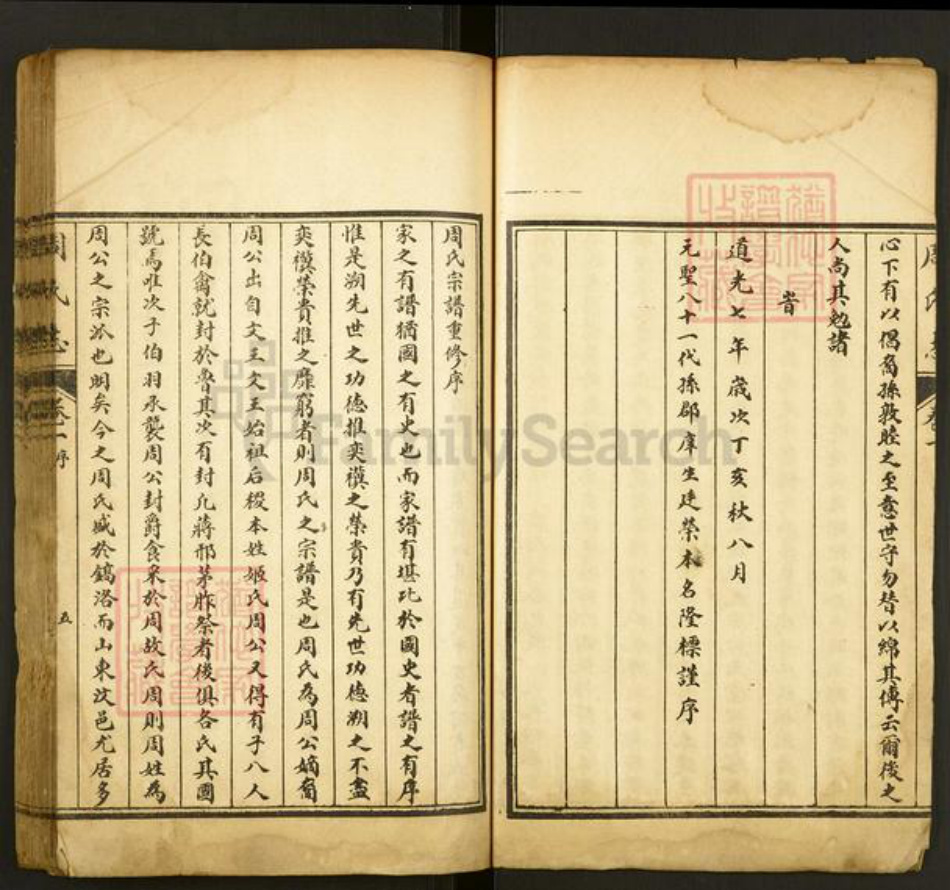 心下有以偈裔孫敦睦之至意世守勿替以綿其傳云爾後之
人尚其勉諸
旹
道光七年歲次丁亥秋八月
元聖八十一代孫郡庠生建榮本名隆標謹序
周氏宗譜重修序
家之有譜猶國之有史也而家譜有堪比於國史者譜之有序
惟是溯先世之功德推奕禩之榮貴乃有先世功德溯之不盡
奕禩榮貴推之靡窮者則周氏之宗譜是也周氏為周公嫡裔
周公出自文王文王始祖后稷本姓姬氏周公又得有子八人
長伯禽就封於魯其次有封凡蔣邢茅胙祭者後俱各氏其國
號焉唯次子伯羽承襲周公封爵食采於周故氏周則周姓為
周公之宗派也明矣今之周氏盛於鎬洛而山東汶邑尤居多
周氏志
卷一序
五
FamilySearch